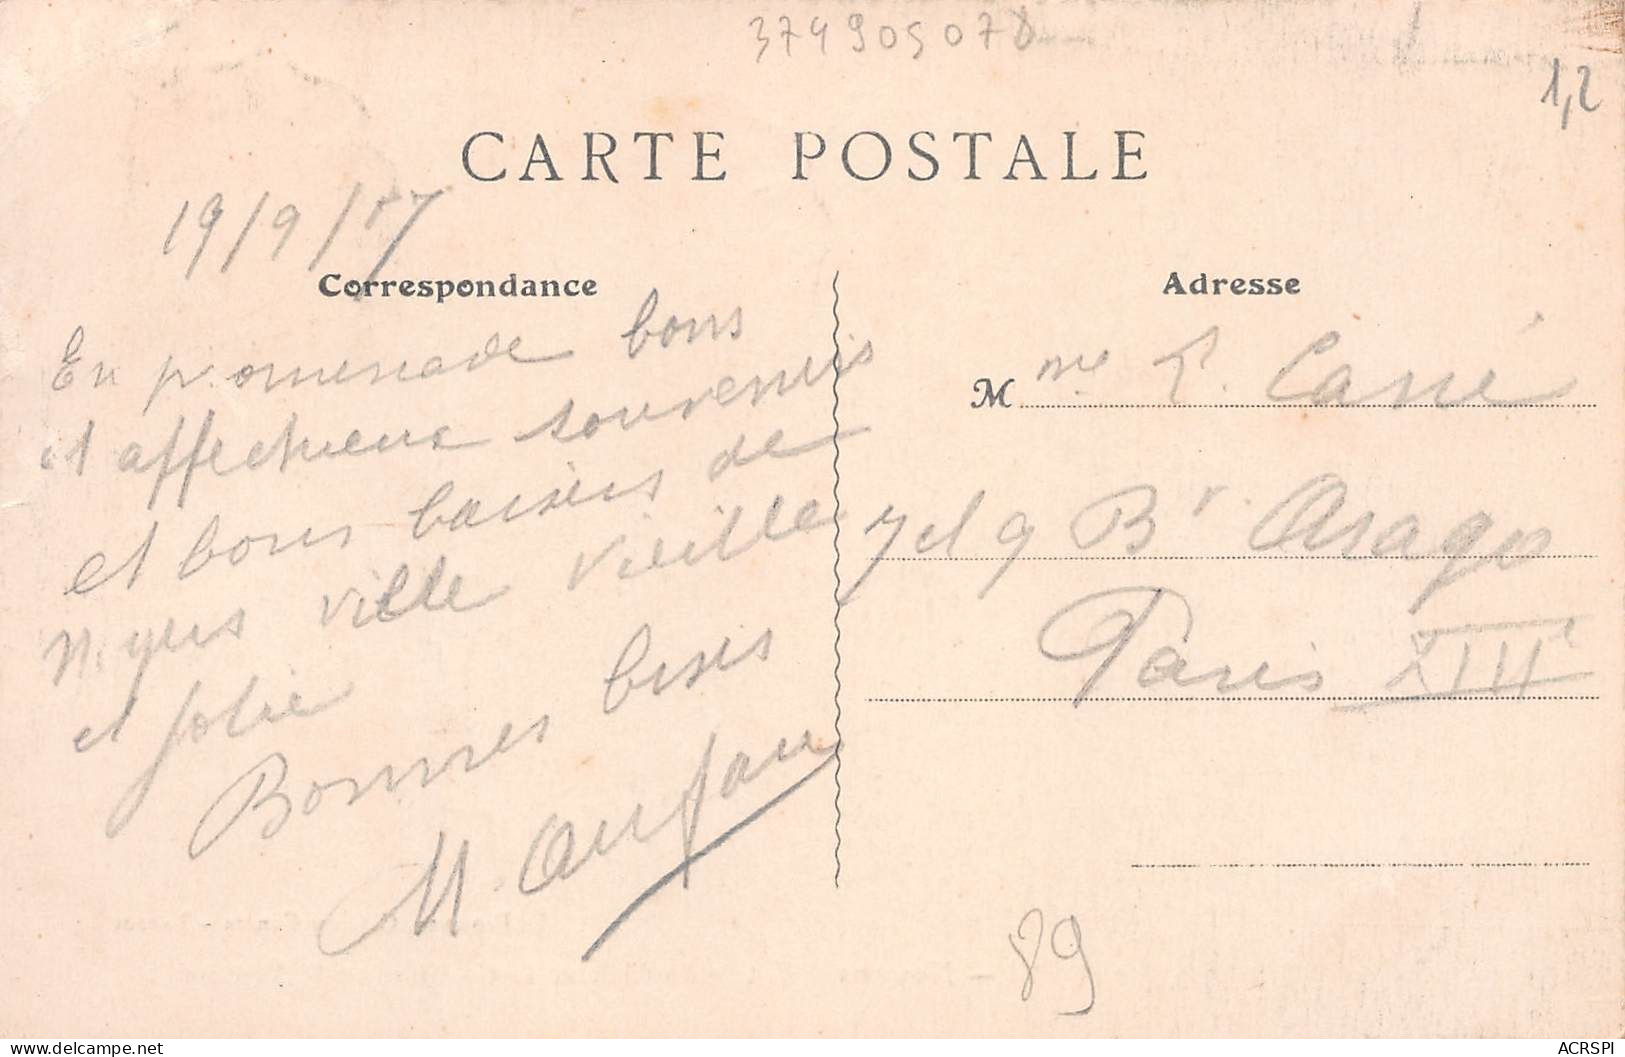 374905078
1,2
CARTE POSTALE
19/9/17
Correspondance
En promenade bons
et affectueux souvenirs
et bons baisers de
ville vieille
et jolie
Bonnes bises
M.
Adresse
Mme L. Carré
7 et 9 Bd. Arago
Paris XIIIe
89
ACRSPI